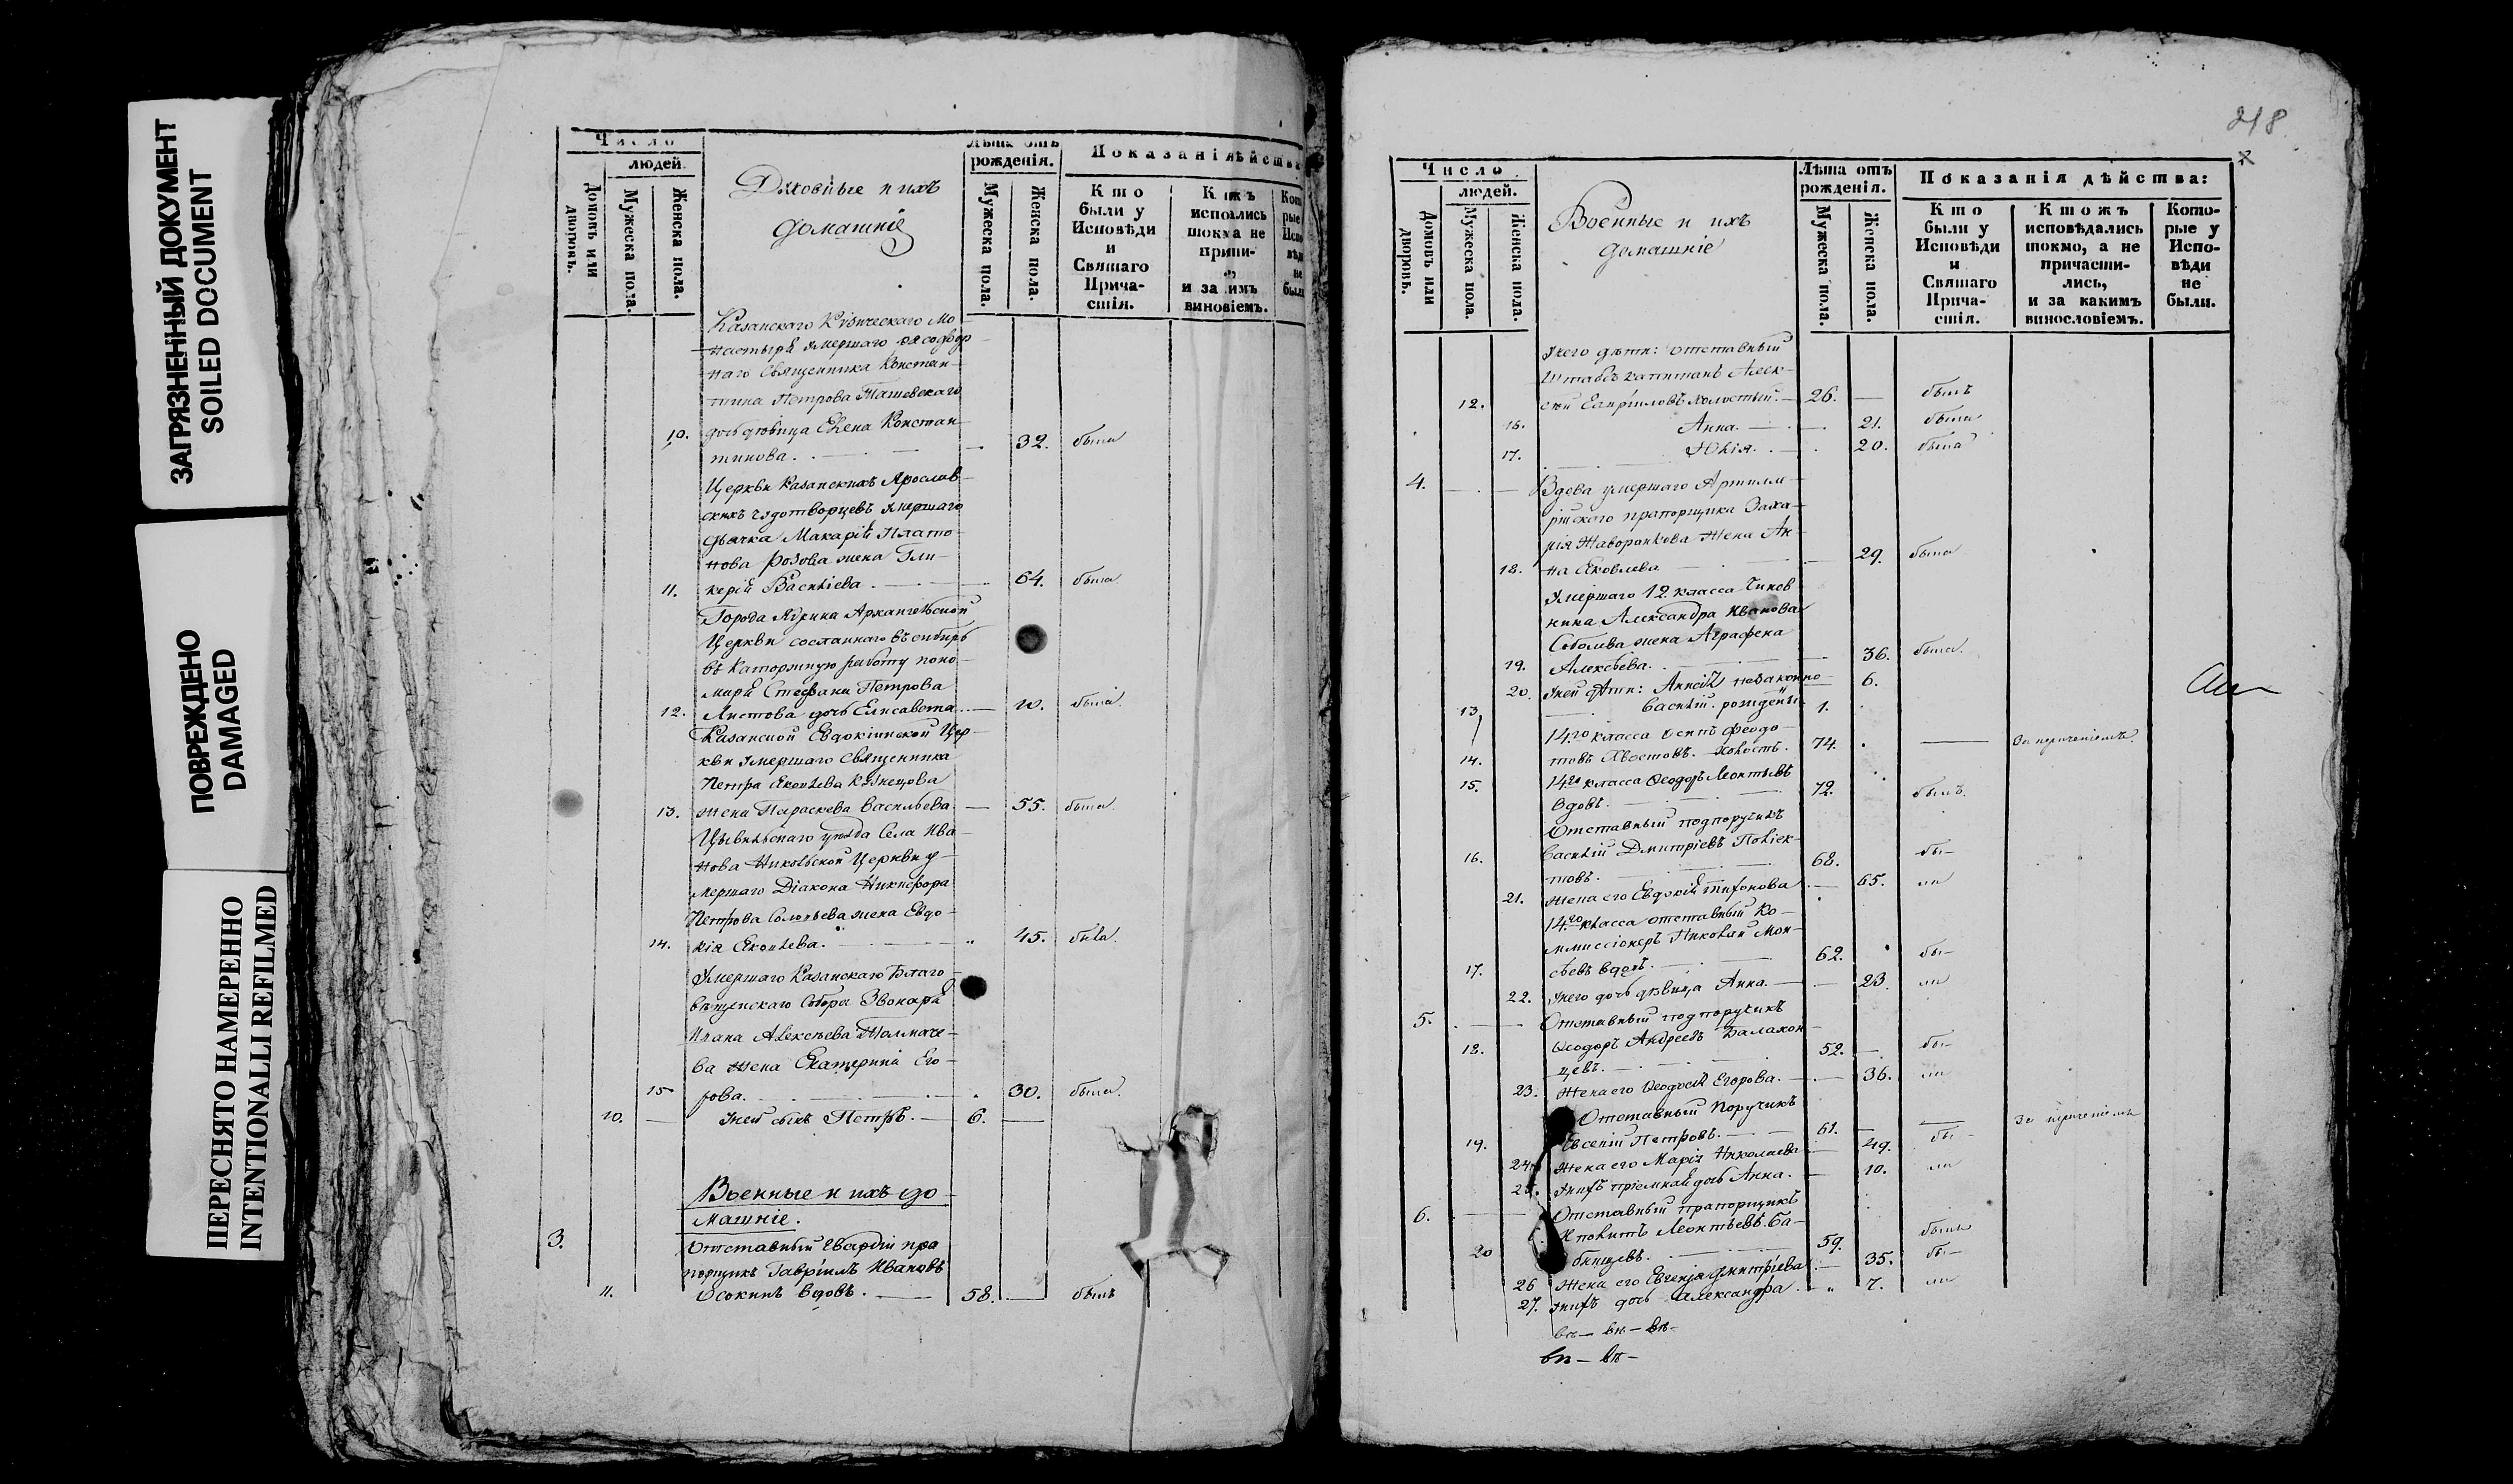 ЗАГРЯЗНЕННЫЙ ДОКУМЕНТ
SOILED DOCUMENT
ПОВРЕЖДЕНО
DAMAGED
ПЕРЕСНЯТО НАМЕРЕННО
INTENTIONALLI REFILMED
Число
людей.
Домовъ или дворовъ.
Мужеска пола.
Женска пола.
Духовные и ихъ
домашніе
Лѣта отъ
рожденія.
Мужеска пола.
Женска пола.
Кто
были у
Исповѣди
и
Святаго
Прича-
стія.
Казанскаго Кизическаго Мо
настыря умершаго
наго Священника Констан-
тина Петрова Ташевскаго
10. дочь дѣвица Елена Констан
тинова. 32. была
Церкви Казанскихъ Ярослав-
скихъ чудотворцевъ умершаго
дьячка Макарія Плато-
нова Розова жена Гли-
11. керія Васильева 64. была
Города Ядрина Архангельской
Церкви сосланнаго въ сибирь
въ каторжную работу поно-
маря Стефана Петрова
12. Листова дочь Елисавета 10. была
Казанской Евдокіинской Цер-
кви умершаго Священника
Петра Яковлева Кузнецова
13. жена Параскева Васильева 55. была
Цывильскаго уѣзда Села Ива-
нова Никольской Церкви у-
мершаго Діакона Никифора
Петрова Соловьева жена Евдо-
14. кія Яковлева. 45. была.
Умершаго Казанскаго Благо-
вѣщенскаго Собора Звонаря
Алексѣева Толмаче-
ва жена Екатерина Его-
15 рова. 30. была.
10. У ней сынъ Петръ. 6.
Военные и ихъ до-
машніе.
3. Отставный Гвардіи пра
порщикъ Гавріилъ Ивановъ
11. Осокинъ вдовъ. 58. былъ
218
Число
людей.
Домовъ или дворовъ.
Мужеска пола.
Женска пола.
Военные и ихъ
домашніе
Лѣта отъ
рожденія.
Мужеска пола.
Женска пола.
Показанія дѣйства:
Кто
были у
Исповѣди
и
Святаго
Прича-
стія.
Ктожъ
исповѣдались
токмо, а не
причасти-
лись,
и за какимъ
винословіемъ.
Кото-
рые у
Испо-
вѣди
не
были.
У него дѣти: отставный
Штабсъ капитанъ Алек-
12. сѣй Гавріиловъ холостый. 26. былъ
16. Анна. 21. была
17. Юлія. 20. была
4. Вдова умершаго Артилле-
рійскаго прапорщика Заха-
рія Жаворонкова жена Ан-
18. на Яковлева 29. была
Умершаго 12 класса Чинов
ника Александра Иванова
Соболева жена Аграфена
19. Алексѣева. 36. была.
20. У ней дѣти: незаконно 6.
13. Василій. рожденн. 1.
14го класса Осипъ Федо-
14. товъ Хвостовъ. Холостъ. 74. За причетіемъ.
15. 14го класса Ѳеодоръ Леонтьевъ
вдовъ. 72. былъ.
Отставный подпоручикъ
16. Василій Дмитріевъ Полиек-
товъ. 68. бы-
21. Жена его Евдокія 65. ли
14го класса отставный Ко-
миссіонеръ Николай Мои-
17. сѣевъ вдовъ. 62. бы-
22. У него дочь дѣвица Анна. 23. ли
5. Отставный подпоручикъ
18. Ѳеодоръ Андреевъ Балакон-
цевъ. 52. бы-
23. Жена его Ѳеодосія Егорова. 36. ли
Отставный Поручикъ
19. Евсевій Петровъ. 61.
24. Жена его Марія Николаева 49. бы-
25. У нихъ пріемная дочь Анна. 10. ли
6. Отставный прапорщикъ
Леонтьевъ Ба-
20 59. былъ
26 Жена его Евгенія Дмитріева 35. бы-
27. У нихъ дочь Александра. 7. ли